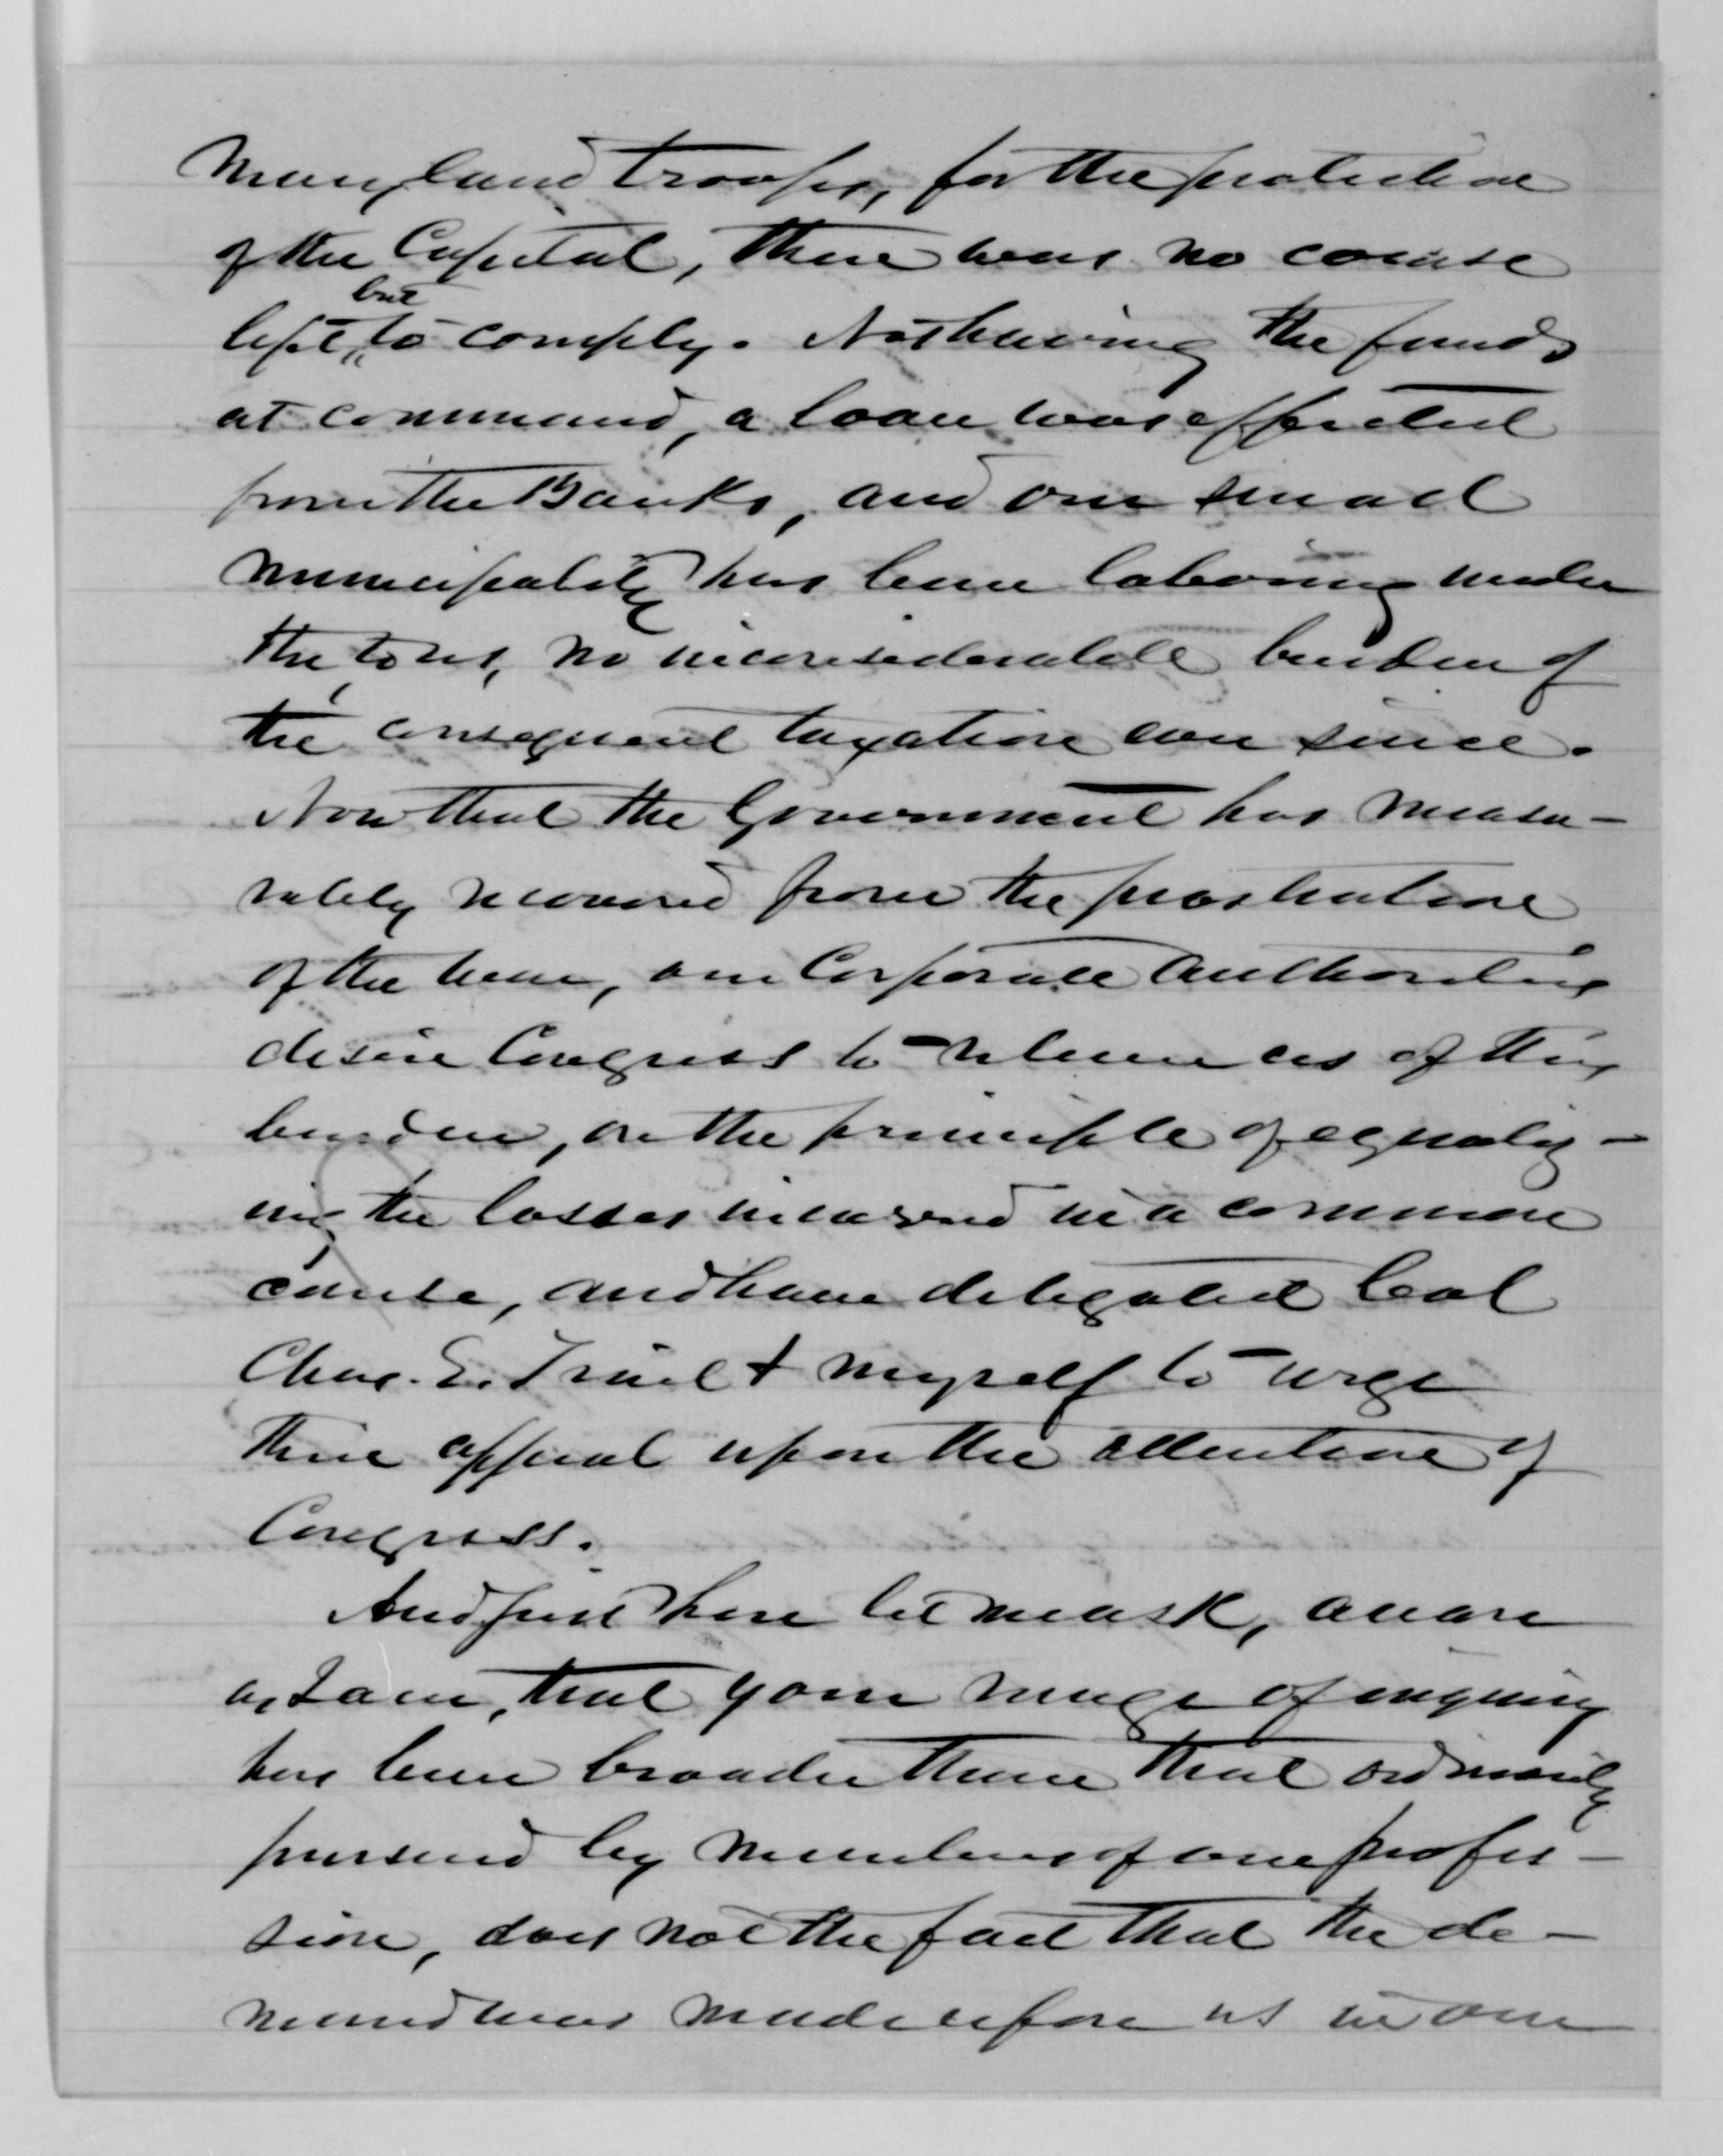 Maryland troops, for the protection
of the Capital, there was no course
left, but to comply. Not having the funds
at command, a loan was effected
from the Banks, and our small
municipality has been laboring under
the to us, no inconsiderable burden of
the consequent taxation ever since.
Now that the Government has measu-
rably recovered from the prostration
of the war, our Corporate Authorities
desire Congress to relieve us of this
burden, on the principle of equaliz-
ing the losses incurred in a common
cause, and have delegated Col
Chas. E. Trail & myself to urge
their appeal upon the attention of
Congress.
And just here let me ask, aware
as I am, that your range of inquiry
has been broader than that ordinarily
pursued by members of our profes-
sion, does not the fact that the de-
mand was made upon us in our